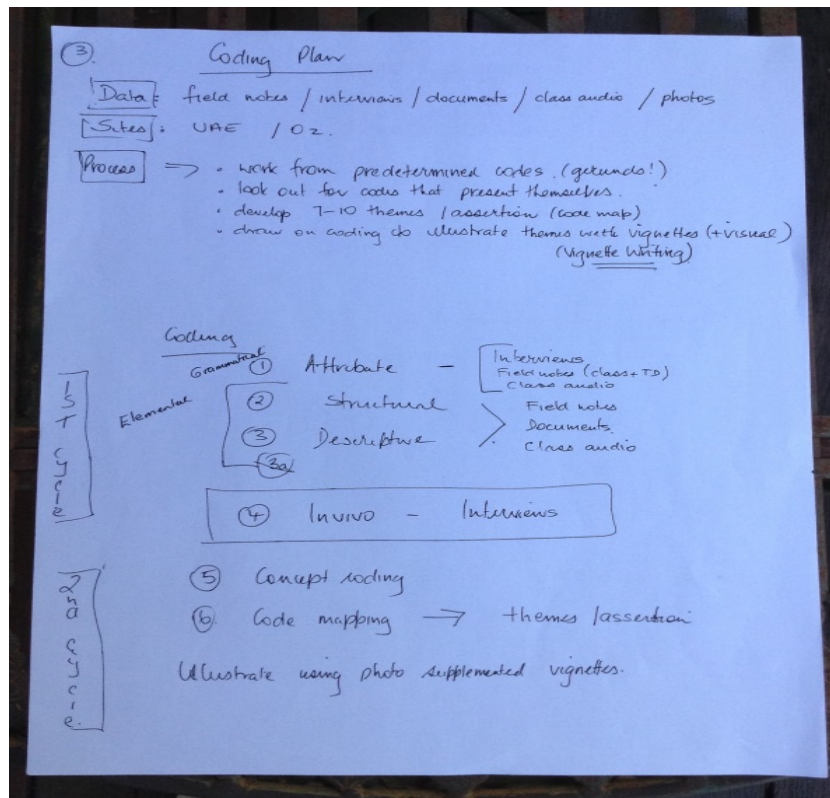 3. Coding Plan
Data: field notes / interviews / documents / class audio / photos
Sites: UAE / Oz.
Process ⇒ • work from predetermined codes. (gerunds!)
• look out for codes that present themselves.
• develop 7-10 themes / assertion (code map)
• draw on coding to illustrate themes with vignettes (+visual)
(Vignette Writing)
Coding
1st cycle
Grammatical 1 Attribute - Interviews
Field notes (class + TD)
Class audio
Elemental 2 Structural Field notes
Documents
3 Descriptive Class audio
3a
4 Invivo - Interviews
2nd cycle.
5 Concept coding
6. Code mapping → themes / assertion
Illustrate using photo supplemented vignettes.